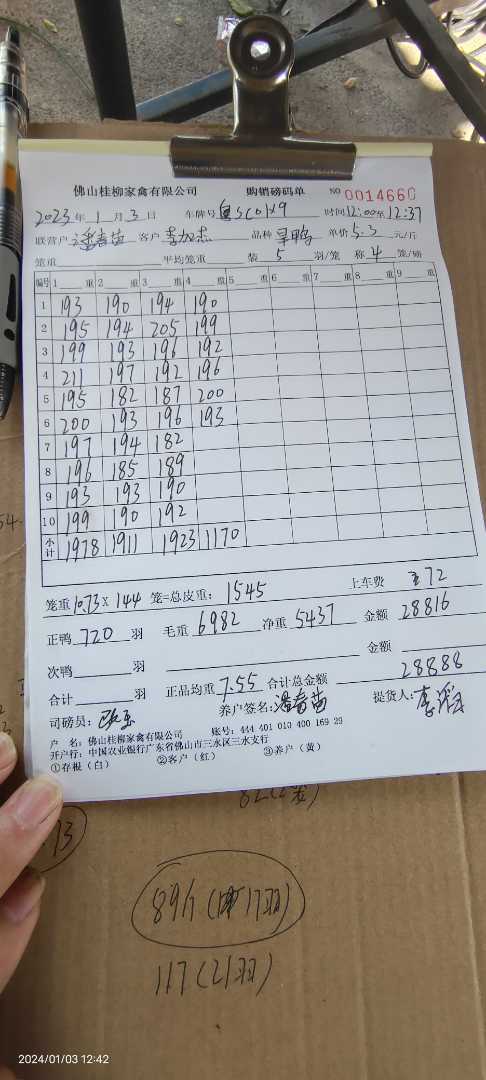 佛山桂柳家禽有限公司 购销磅码单 NO 0014660
2023年 1月 3日 车牌号 时间12:00至12:37
联营户 潘春苗 客户 李加志 品种 旱鸭 单价5.3元/斤
笼重 平均笼重 装 5 羽/笼 称 4 笼/磅
编号 1 重 2 重 3 重 4 重 5 重 6 重 7 重 8 重 9 重
1 193 190 194 190
2 195 194 205 199
3 199 193 196 192
4 211 197 192 196
5 195 182 187 200
6 200 193 196 193
7 197 194 182
8 196 185 189
9 193 193 190
10 199 190 192
小计 1978 1911 1923 1170
笼重10.73×144 笼=总皮重: 1545 上车费 72
正鸭 720 羽 毛重 6982 净重 5437 金额 28816
次鸭 羽 金额
合计 羽 正品均重 7.55 合计总金额 28888
司磅员: 养户签名: 潘春苗 提货人: 李
户 名: 佛山桂柳家禽有限公司 账号: 444 401 010 400 169 29
开户行: 中国农业银行广东省佛山市三水区三水支行
①存根(白) ②客户(红) ③养户(黄)
54.
.13
89斤(17羽)
117(21羽)
2024/01/03 12:42